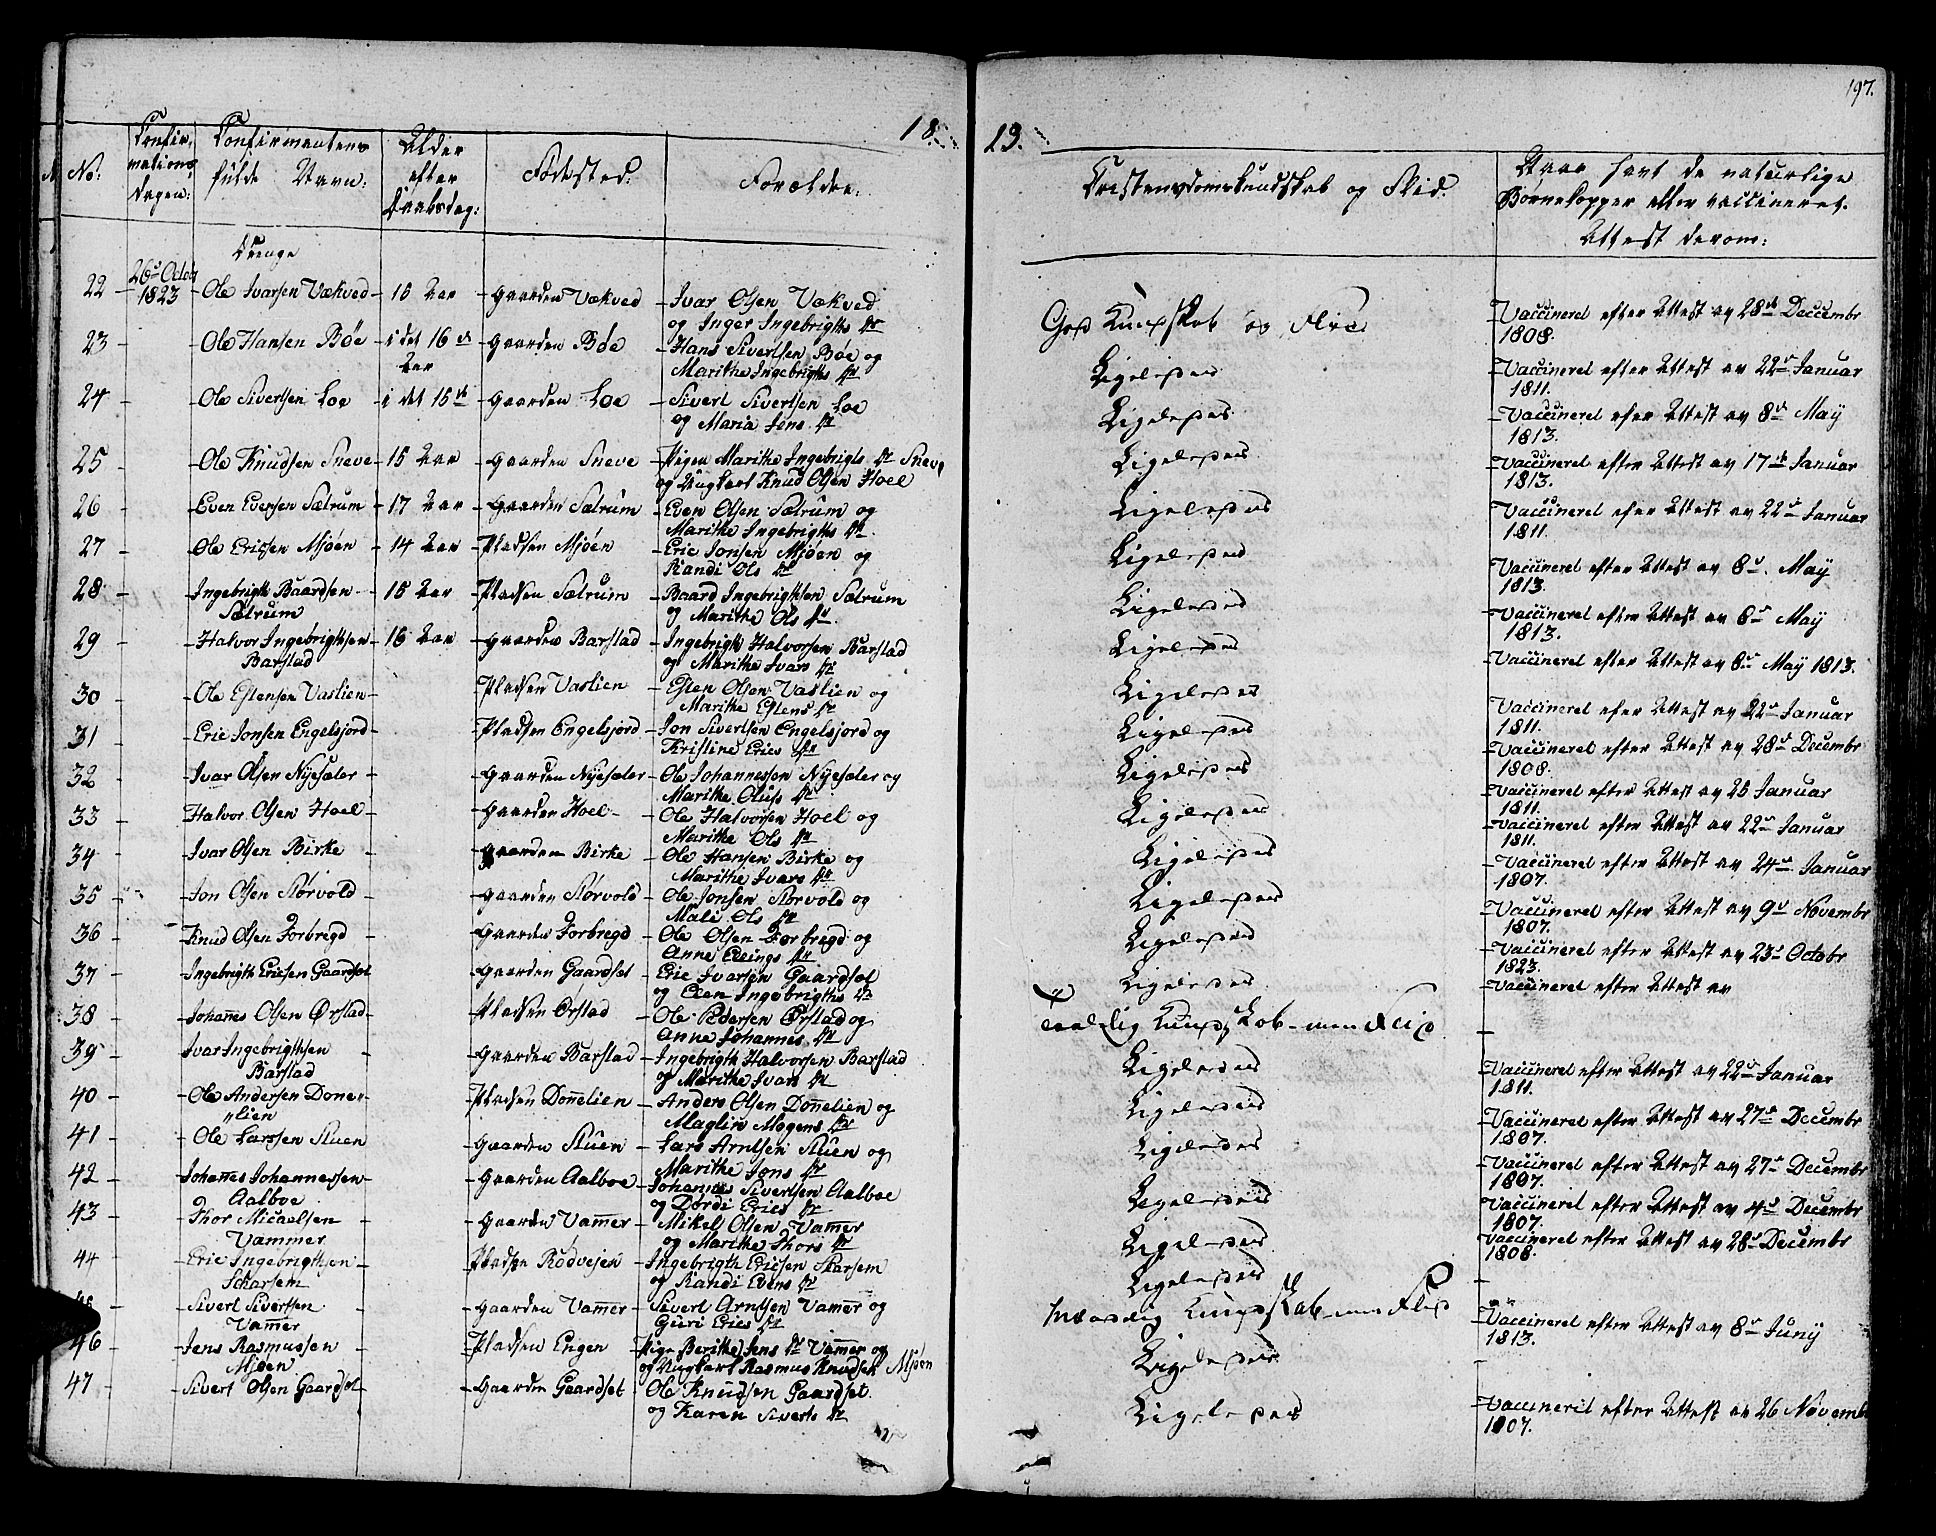 197.
18. 23.
No: Confir- Confirmantens Alder Fødested: Forældre: Cristendomskundskab og Flid. Have havt de naturlige
mations fulde Navn: efter Børnekopper eller vaccineret.
dagen: Daabsdag: Attest derom:
Drenge
22 26de Octbr 1823 Ole Ivarsen Vækved 15 Aar Gaarden Vækved Ivar Olsen Vækved og Inger Ingebrigths Dr God Kundskab og Flid Vaccineret efter Attest av 28de Decembr 1808.
23 Ole Hansen Böe i det 16de Aar Gaarden Böe Hans Sivertsen Böe og Marithe Ingebrigths Dr Ligeledes Vaccineret efter Attest av 22de Januar 1811.
24 Ole Sivertsen Loe i det 15de Gaarden Loe Sivert Sivertsen Loe og Maria Jens Dr Ligeledes Vaccineret efter Attest av 8de May 1813.
25 Ole Knudsen Sneve 15 Aar Gaarden Sneve Pigen Marithe Ingebrigts Dr Sneve og Ungkarl Knud Olsen Hoel Ligeledes Vaccineret efter Attest av 17de Januar 1813.
26 Even Evensen Sætrum 17 Aar Gaarden Sætrum Even Olsen Sætrum og Marithe Ingebrigths Dr. Ligeledes Vaccineret efter Attest av 22de Januar 1811.
27 Ole Ericsen Mjöen 14 Aar Pladsen Mjöen Eric Jonsen Mjöen og Randi Ols Dr Ligeledes Vaccineret efter Attest av 8de May 1813.
28 Ingebrigth Baardsen Sætrum 15 Aar Pladsen Sætrum Baard Ingebrigthsen Sætrum og Marithe Ols Dr. Ligeledes Vaccineret efter Attest av 6de May 1813.
29 Halvor Ingebrigthsen Barstad 16 Aar Gaarden Barstad Ingebrigth Halvorsen Barstad og Marithe Ivars Dr Ligeledes Vaccineret efter Attest av 8de May 1813.
30 Ole Estensen Vaslien Pladsen Vaslien Esten Olsen Vaslien og Marithe Estens Dr Ligeledes Vaccineret efter Attest av 22de Januar 1811.
31 Eric Jonsen Engelsjord Pladsen Engelsjord Jon Sivertsen Engelsjord og Kristine Erics Dr Ligeledes Vaccineret efter Attest av 28de Decembr 1808.
32 Ivar Olsen Nyesæter Gaarden Nyesæter Ole Johannessen Nyesæter og Marithe Olufs Dr Ligeledes Vaccineret efter Attest av 25 Januar 1811.
33 Halvor Olsen Hoel Gaarden Hoel Ole Halvorsen Hoel og Marithe Ols Dr Ligeledes Vaccineret efter Attest av 22de Januar 1811.
34 Ivar Olsen Birke Gaarden Birke Ole Hansen Birke og Marithe Ivars Dr Ligeledes Vaccineret efter Attest av 24de Januar 1807.
35 Jon Olsen Störvold Gaarden Störvold Ole Jonsen Störvold og Mali Ols Dr Ligeledes Vaccineret efter Attest av 9de Novembr 1807.
36 Knud Olsen Forbregd Gaarden Forbregd Ole Olsen Forbregd og Anne Ellings Dr Ligeledes Vaccineret efter Attest av 23de Octobr 1823.
37 Ingebrigth Ericsen Gaardset Gaarden Gaardset Eric Ivarsen Gaardset og Elen Ingebrigths Dr Ligeledes Vaccineret efter Attest av
38 Johanes Olsen Ørstad Pladsen Ørstad Ole Pedersen Ørstad og Anne Johannes Dr Taalelig Kundskab men Flid
39 Ivar Ingebrigthsen Barstad Gaarden Barstad Ingebrigth Halvorsen Barstad og Marithe Ivars Dr Ligeledes Vaccineret efter Attest av 22de Januar 1811.
40 Ole Andersen Donerlien Pladsen Donelien Anders Olsen Donelien og Maglin Mogens Dr Ligeledes Vaccineret efter Attest av 27de Decembr 1807.
41 Ole Larssen Stuen Gaarden Stuen Lars Arntsen Stuen og Marithe Jons Dr Ligeledes Vaccineret efter Attest av 27de Decembr 1807.
42 Johanes Johannessen Aalboe Gaarden Aalboe Johannes Sivertsen Aalboe og Dordi Erics Dr Ligeledes Vaccineret efter Attest av 4de Decembr 1807.
43 Thor Micaelsen Vammer Gaarden Vamer Mikel Olsen Vamer og Marithe Thors Dr Ligeledes Vaccineret efter Attest av 28de Decembr 1808.
44 Eric Ingebrigthsen Skarsem Pladsen Rödvejen Ingebrigth Ericsen Skarsem og Randi Evens Dr Ligeledes
45 Sivert Sivertsen Vamer Gaarden Vamer Sivert Arntsen Vamer og Guri Erics Dr Maadelig Kundskab men Flid Vaccineret efter Attest av 8de Juny 1813.
46 Jens Rasmussen Mjöen Pladsen Engen Pige Berithe Jens Dr Vamer og og Ungkarl Rasmus Knudsen Mjöen Ligeledes
47 Sivert Olsen Gaardset Gaarden Gaardset Ole Knudsen Gaardset. og Karen Siverts Dr Ligeledes Vaccineret efter Attest av 26 Novembr 1807.